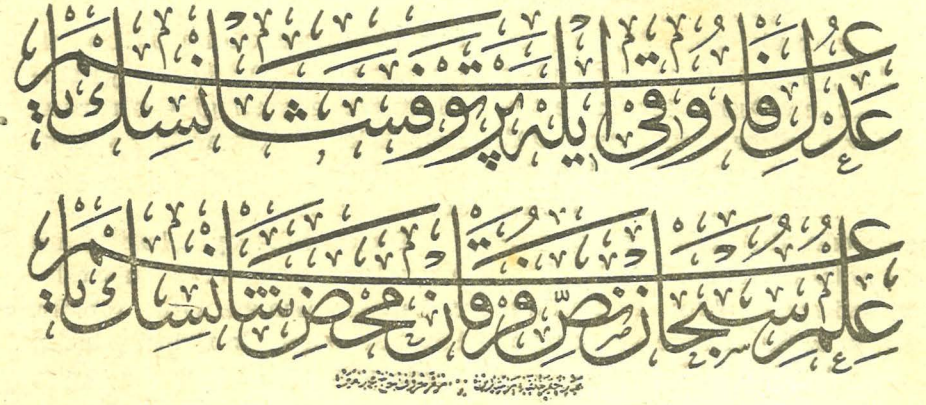 عدل فاروقى ايله پرتو فشانسك يا عمر
علم سبحان نصّ فرقان محض شانسك يا عمر